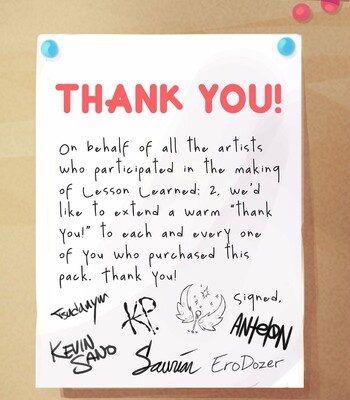 THANK YOU!
On behalf of all the artists
who participated in the making
of Lesson Learned: 2, we'd
like to extend a warm "thank
you!" to each and every one
of you who purchased this
pack. Thank you!
signed,
Tsudanym
KP.
ANtelON
KEVIN
SANO
Saurian
EroDozer